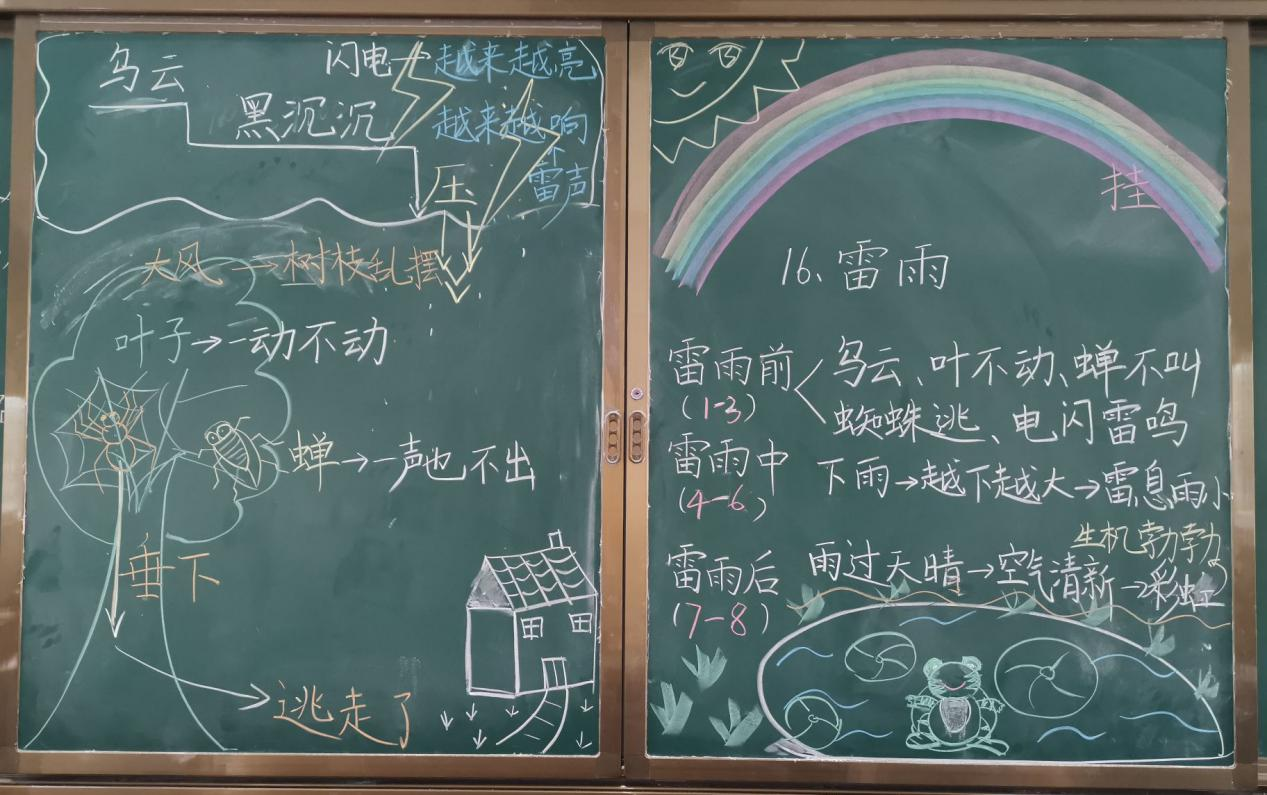 乌云
闪电→越来越亮
黑沉沉
越来越响
雷声
压
大风→树枝乱摆
叶子→一动不动
蝉→一声也不出
垂下
逃走了
挂
16、雷雨
雷雨前
(1-3)
乌云、叶不动、蝉不叫
蜘蛛逃、电闪雷鸣
雷雨中
(4-6)
下雨→越下越大→雷息雨小
生机勃勃
雷雨后
(7-8)
雨过天晴→空气清新→彩虹